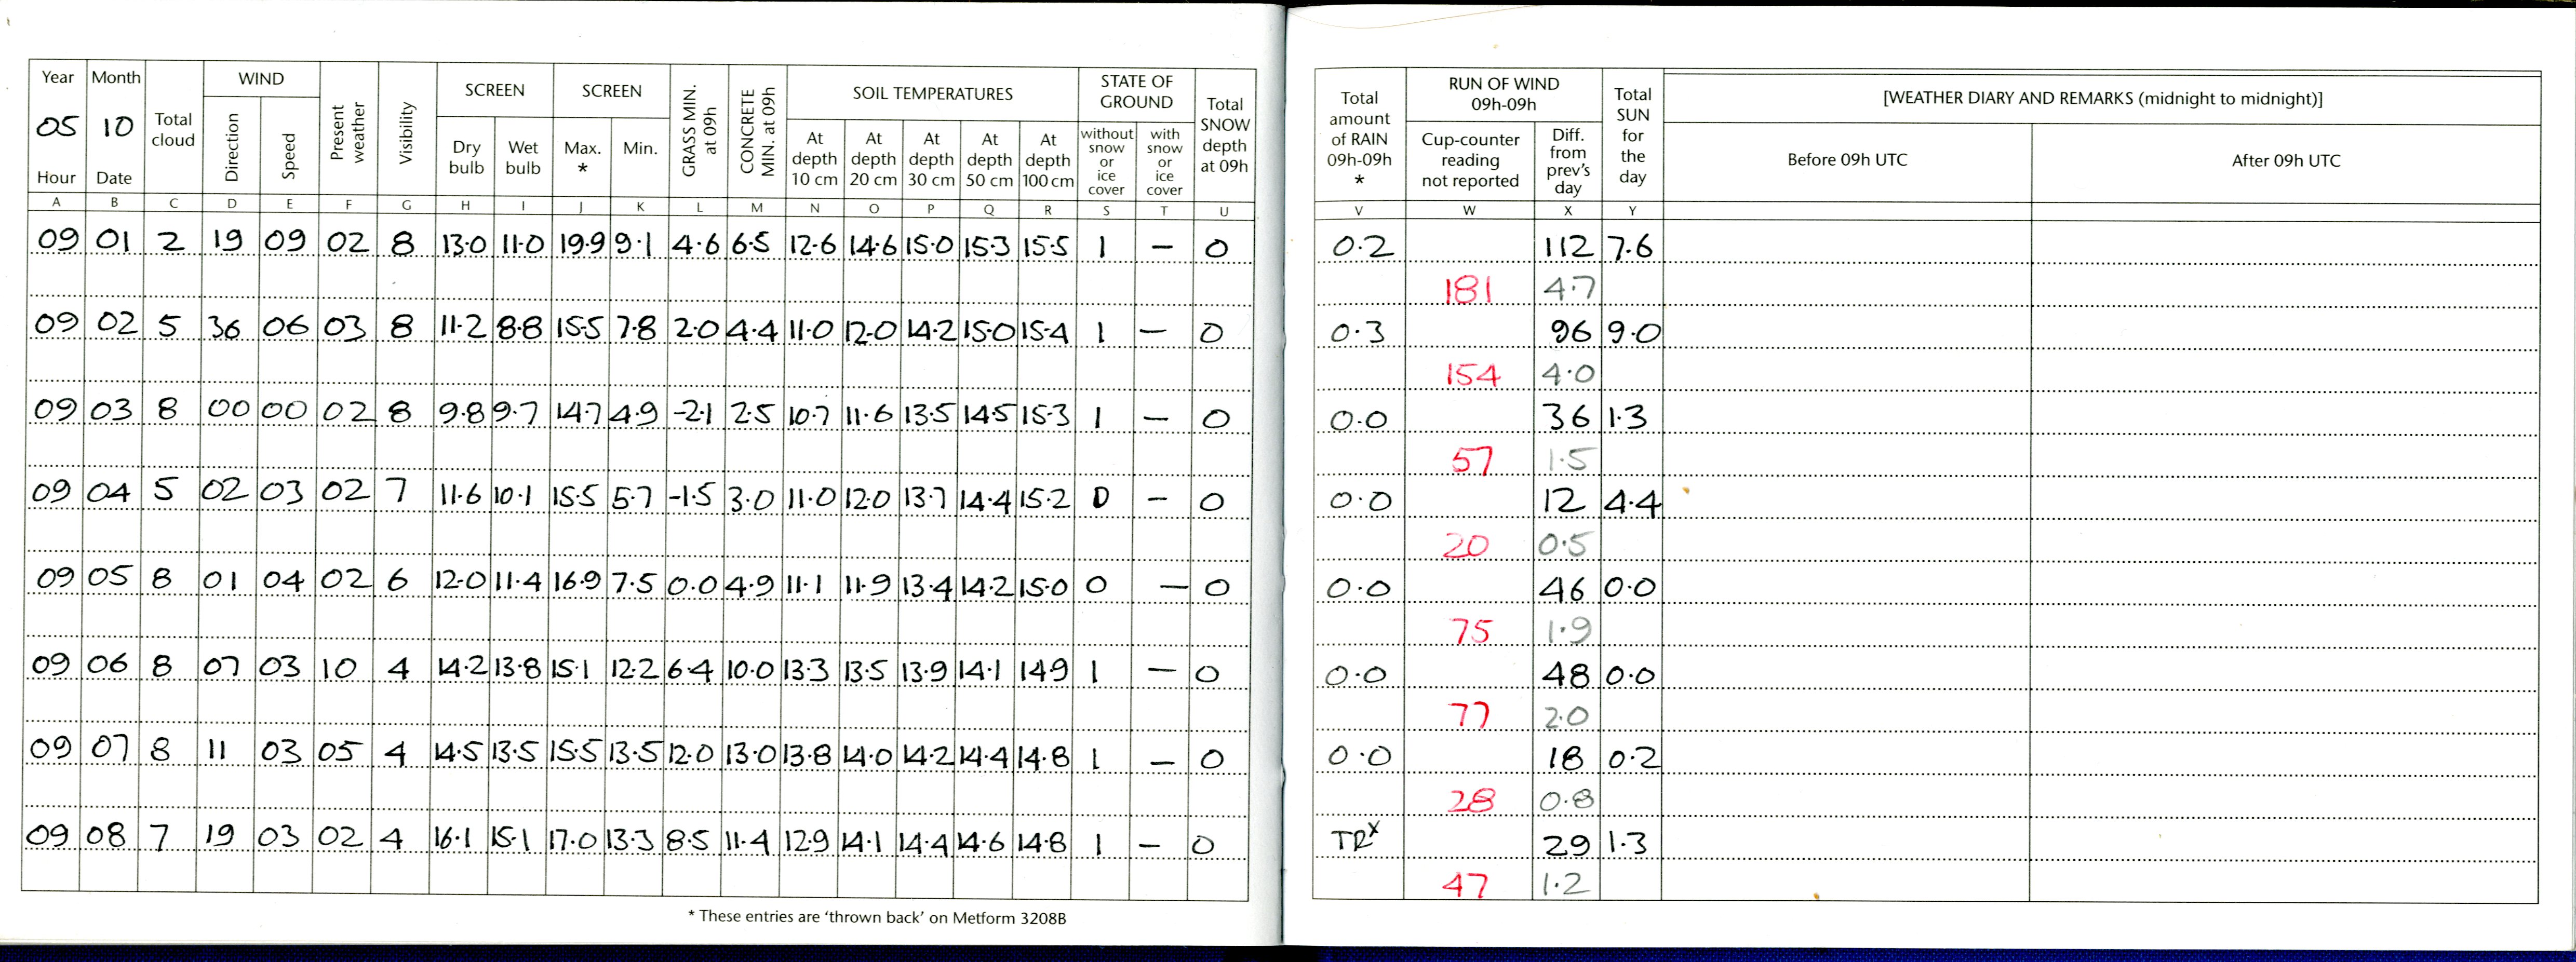 Year Month Total cloud WIND Present weather Visibility SCREEN SCREEN GRASS MIN. at 09h CONCRETE MIN. at 09h SOIL TEMPERATURES STATE OF GROUND Total SNOW depth at 09h
05 10 Direction Speed Dry bulb Wet bulb Max. * Min. At depth 10 cm At depth 20 cm At depth 30 cm At depth 50 cm At depth 100 cm without snow or ice cover with snow or ice cover
Hour Date
A B C D E F G H I J K L M N O P Q R S T U
09 01 2 19 09 02 8 13.0 11.0 19.9 9.1 4.6 6.5 12.6 14.6 15.0 15.3 15.5 1 — 0
09 02 5 36 06 03 8 11.2 8.8 15.5 7.8 2.0 4.4 11.0 12.0 14.2 15.0 15.4 1 — 0
09 03 8 00 00 02 8 9.8 9.7 14.7 4.9 -2.1 2.5 10.7 11.6 13.5 14.5 15.3 1 — 0
09 04 5 02 03 02 7 11.6 10.1 15.5 5.7 -1.5 3.0 11.0 12.0 13.7 14.4 15.2 0 — 0
09 05 8 01 04 02 6 12.0 11.4 16.9 7.5 0.0 4.9 11.1 11.9 13.4 14.2 15.0 0 — 0
09 06 8 07 03 10 4 14.2 13.8 15.1 12.2 6.4 10.0 13.3 13.5 13.9 14.1 14.9 1 — 0
09 07 8 11 03 05 4 14.5 13.5 15.5 13.5 12.0 13.0 13.8 14.0 14.2 14.4 14.8 1 — 0
09 08 7 19 03 02 4 16.1 15.1 17.0 13.3 8.5 11.4 12.9 14.1 14.4 14.6 14.8 1 — 0
* These entries are 'thrown back' on Metform 3208B
Total amount of RAIN 09h-09h * RUN OF WIND 09h-09h Total SUN for the day [WEATHER DIARY AND REMARKS (midnight to midnight)]
Cup-counter reading not reported Diff. from prev's day Before 09h UTC After 09h UTC
V W X Y
0.2 112 7.6
181 4.7
0.3 96 9.0
154 4.0
0.0 36 1.3
57 1.5
0.0 12 4.4
20 0.5
0.0 46 0.0
75 1.9
0.0 48 0.0
77 2.0
0.0 18 0.2
28 0.8
TRx 29 1.3
47 1.2